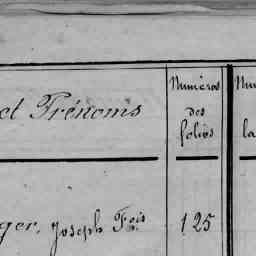 et Prénoms
Numéros
des
folios
Nu
la
ger, Joseph Fois
125